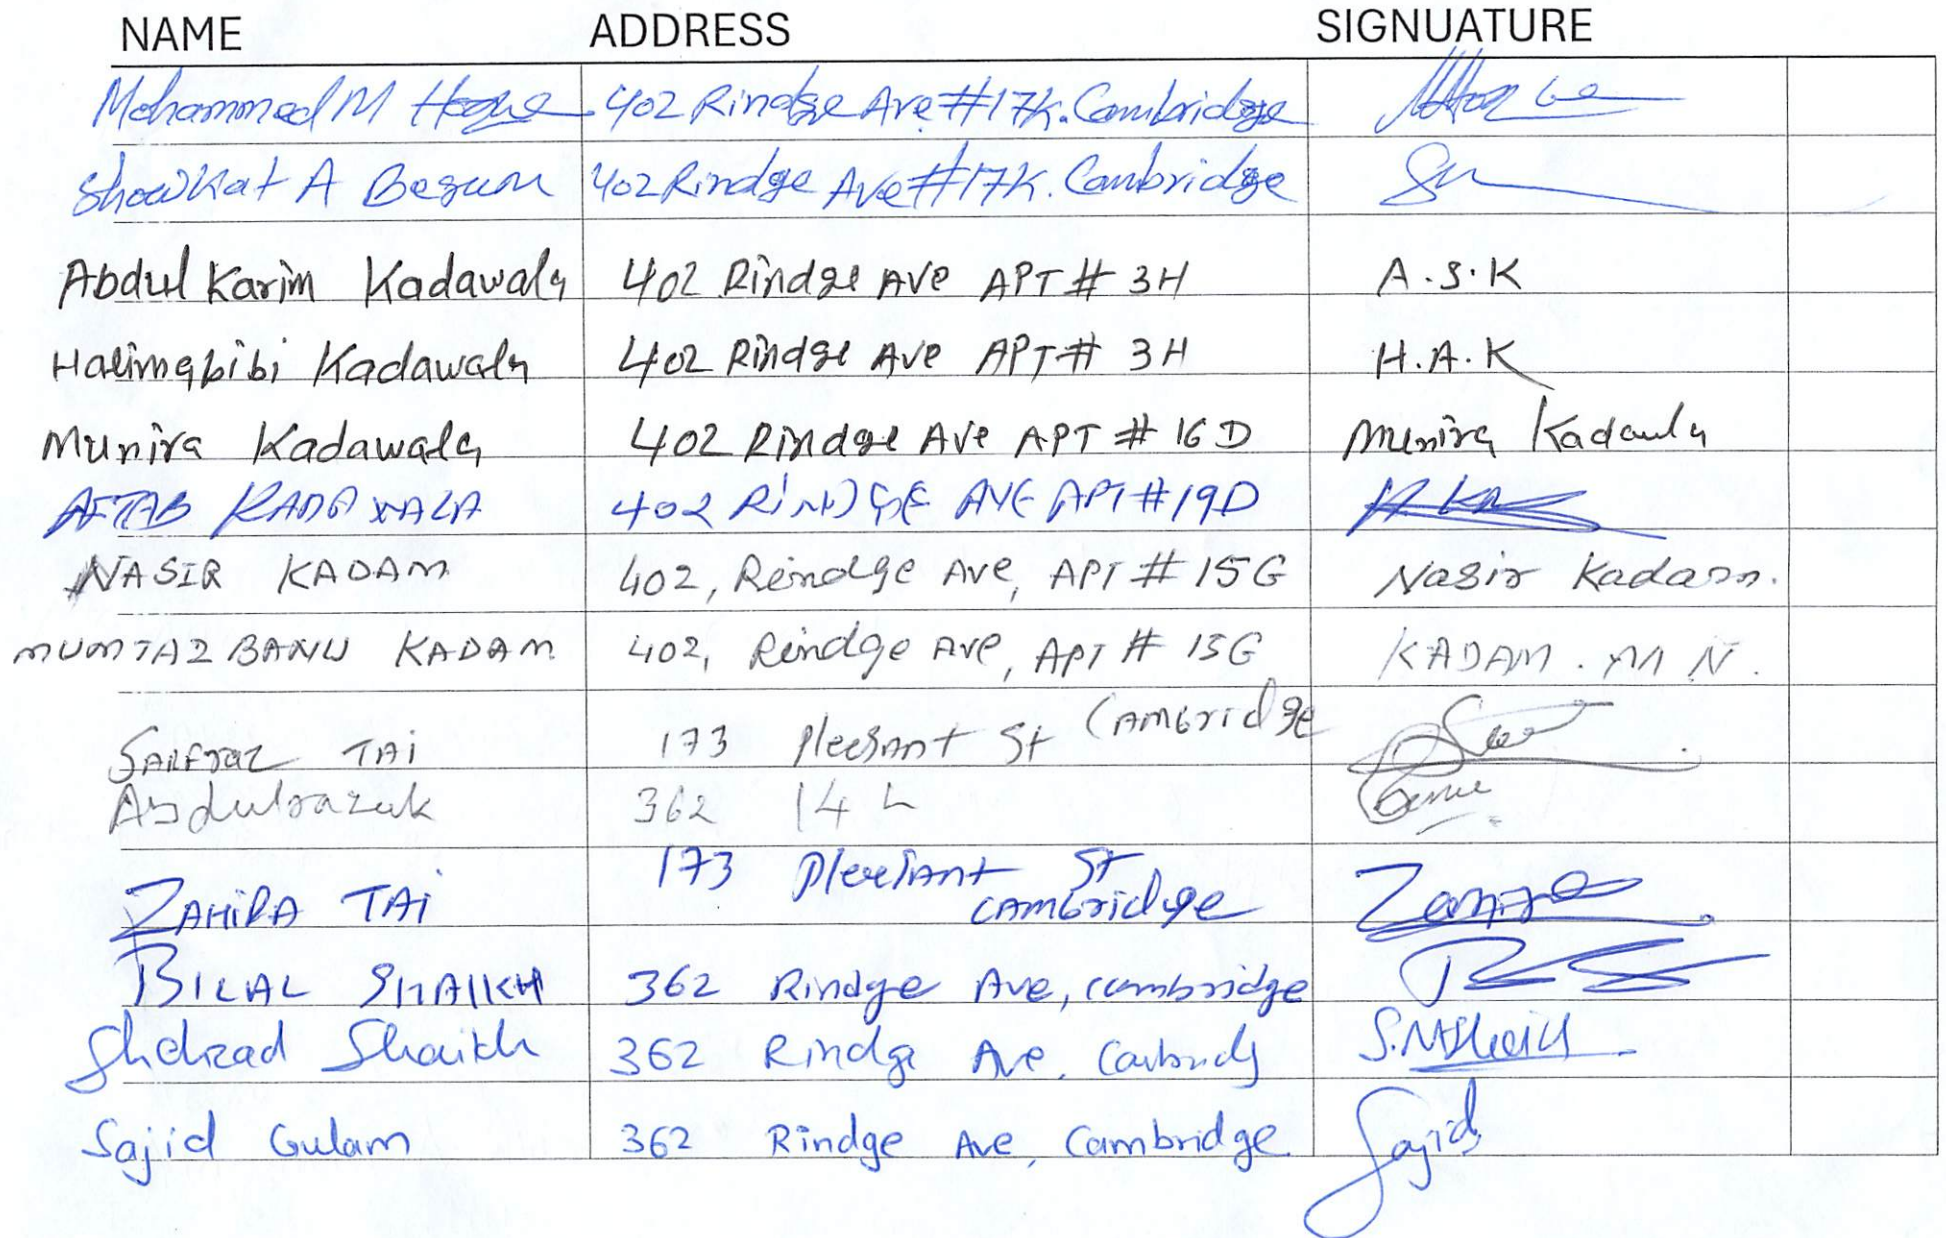 NAME ADDRESS SIGNUATURE
Mohammad M Hoque 402 Rindge Ave #17K. Cambridge
Showkat A Begum 402 Rindge Ave #17K. Cambridge
Abdul Karim Kadawala 402 Rindge Ave APT # 3H A.S.K
Halimabibi Kadawala 402 Rindge Ave APT # 3H H.A.K
Munira Kadawala 402 Rindge Ave APT # 16D Munira Kadawla
AFTAB KADAWALA 402 RINDGE AVE APT #19D
NASIR KADAM 402, Rindge Ave, APT # 15G Nasir Kadam.
MUMTAZ BANU KADAM 402, Rindge Ave, APT # 15G KADAM. M N.
SARFRAZ TAi 173 Pleasant St Cambridge
Abdulrazak 362 14 L
ZAHIRA TAi 173 Pleasant St
Cambridge
BILAL SHAIKH 362 Rindge Ave, Cambridge
Shahzad Shaikh 362 Rindge Ave,
Sajid Gulam 362 Rindge Ave, Cambridge Sajid